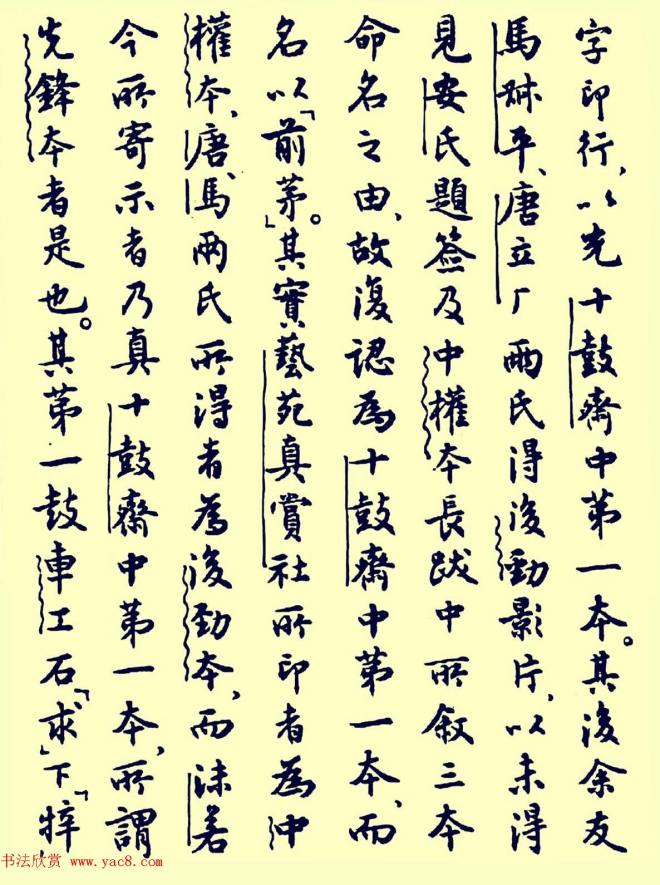 字印行，以充十鼓齋中第一本。其後余友
馬叔平、唐立厂兩氏得後勁影片，以未得
見安氏題簽及中權本長跋中所叙三本
命名之由，故復認爲十鼓齋中第一本，而
名以「前茅」。其實藝苑真賞社所印者爲中
權本，唐、馬兩氏所得者爲後勁本，而沫若
今所寄示者乃真十鼓齋中第一本，所謂
先鋒本者是也。其第一鼓車工石，「求」下「牸」，
书法欣赏 www.yac8.com